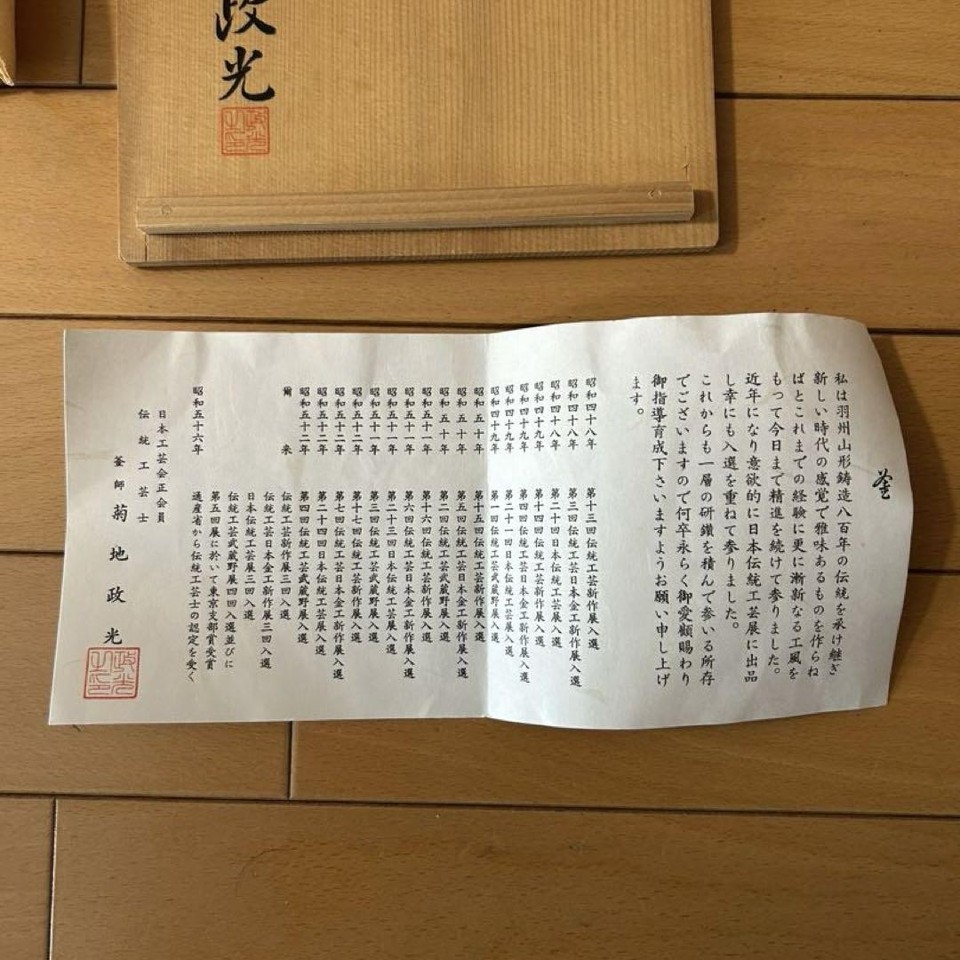 政光
釜
私は羽州山形鋳造八百年の伝統を承け継ぎ
新しい時代の感覚で雅味あるものを作らね
ばとこれまでの経験に更に漸新なる工風を
もって今日まで精進を続けて参りました。
近年になり意欲的に日本伝統工芸展に出品
し幸にも入選を重ねて参りました。
これからも一層の研鑽を積んで参いる所存
でございますので何卒永らく御愛顧賜わり
御指導育成下さいますようお願い申し上げ
ます。
昭和四十八年 第十三回伝統工芸新作展入選
昭和四十八年 第三回伝統工芸日本金工新作展入選
昭和四十八年 第二十回日本伝統工芸展入選
昭和四十九年 第十四回伝統工芸新作展入選
昭和四十九年 第二十一回日本伝統工芸展入選
昭和四十九年 第一回伝統工芸武蔵野展入選
昭和五十年 第十五回伝統工芸新作展入選
昭和五十年 第五回伝統工芸日本金工新作展入選
昭和五十年 第二回伝統工芸武蔵野展入選
昭和五十一年 第十六回伝統工芸新作展入選
昭和五十一年 第六回伝統工芸日本金工新作展入選
昭和五十一年 第二十三回日本伝統工芸展入選
昭和五十一年 第三回伝統工芸武蔵野展入選
昭和五十二年 第十七回伝統工芸新作展入選
昭和五十二年 第七回伝統工芸日本金工新作展入選
昭和五十二年 第二十四回日本伝統工芸展入選
昭和五十二年 第四回伝統工芸武蔵野展入選
爾来 伝統工芸新作展三回入選
伝統工芸日本金工新作展三回入選
日本伝統工芸展三回入選
伝統工芸武蔵野展四回入選並びに
第五回展に於いて東京支部賞受賞
昭和五十六年 通産省から伝統工芸士の認定を受く
日本工芸会正会員
伝統工芸士
釜師 菊地政光